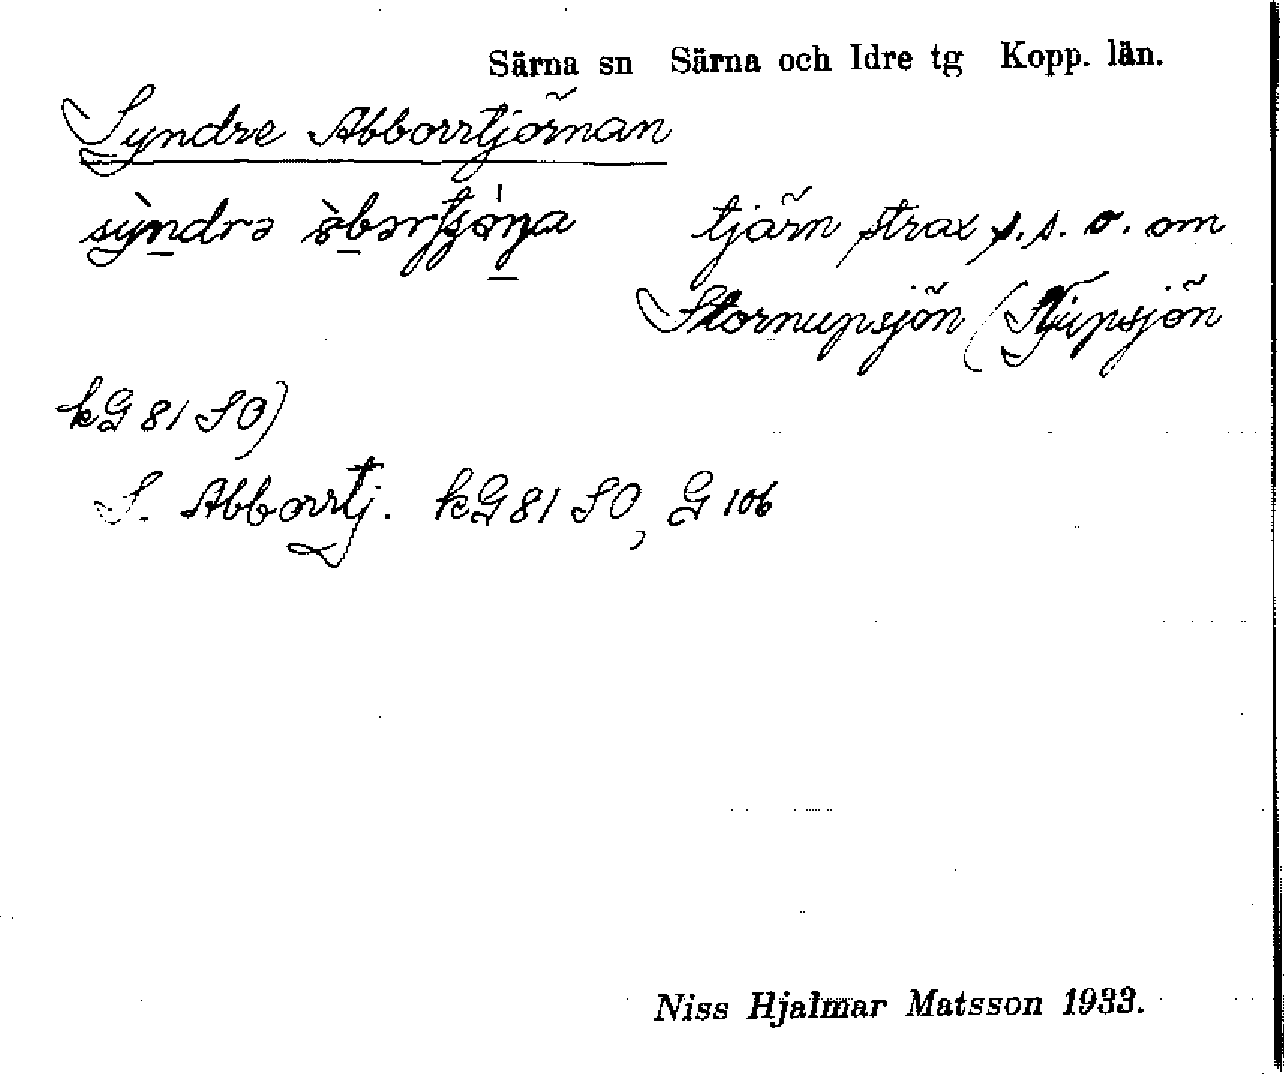 Särna sn Särna och Idre tg Kopp. län.
Syndre Abborrtjörnan
sỳndrə
tjärn strax s.s.o. om
Stornupsjön (
kG 81 SO)
S. Abborrtj. kG 81 SO, G 106
Niss Hjalmar Matsson 1933.